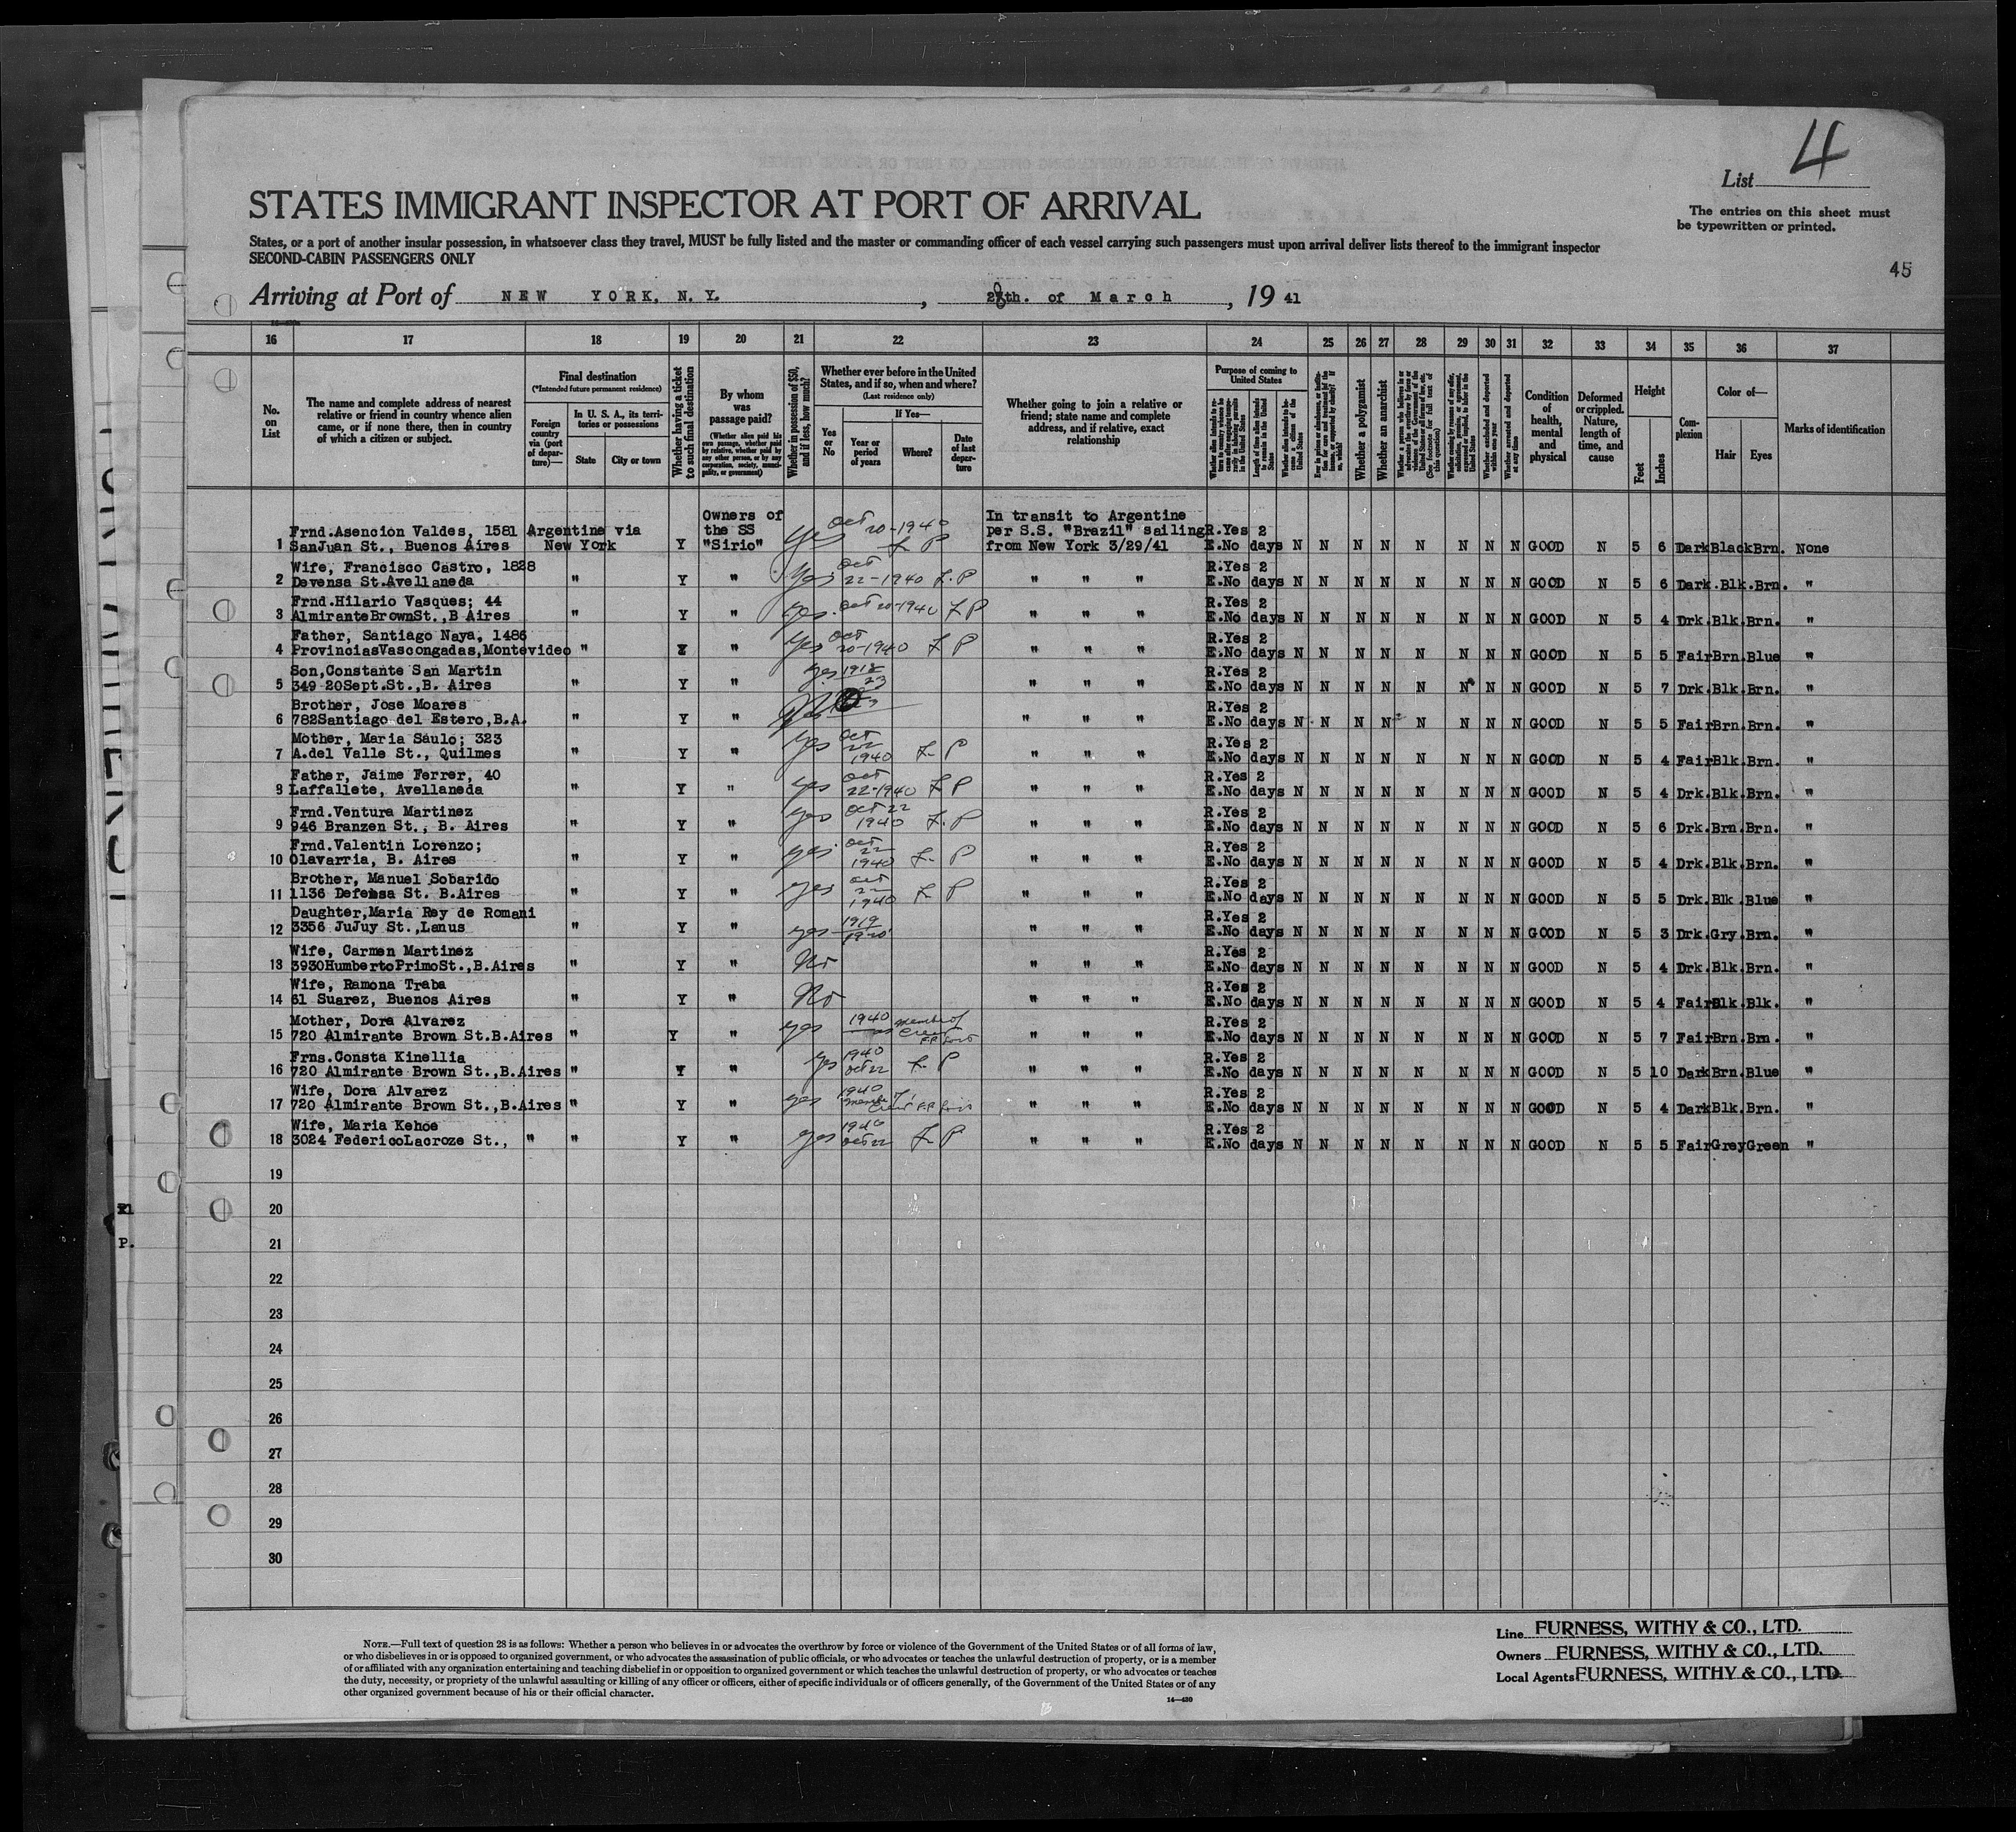 4
List
The entries on this sheet must
be typewritten or printed.
STATES IMMIGRANT INSPECTOR AT PORT OF ARRIVAL
States, or a port of another insular possession, in whatsoever class they travel, MUST be fully listed and the master or commanding officer of each vessel carrying such passengers must upon arrival deliver lists thereof to the immigrant inspector
SECOND-CABIN PASSENGERS ONLY
45
Arriving at Port of NEW YORK, N. Y. , 28th. of March , 19 41
16 17 18 19 20 21 22 23 24 25 26 27 28 29 30 31 32 33 34 35 36 37
No. on List
The name and complete address of nearest relative or friend in country whence alien came, or if none there, then in country of which a citizen or subject.
Final destination
(*Intended future permanent residence)
Foreign country via (port of departure)—
In U. S. A., its territories or possessions
State
City or town
Whether having a ticket to such final destination
By whom was passage paid?
(Whether alien paid his own passage, whether paid by relative, whether paid by any other person, or by any corporation, society, municipality, or government)
Whether in possession of $50, and if less, how much?
Whether ever before in the United States, and if so, when and where?
(Last residence only)
Yes or No
If Yes—
Year or period of years
Where?
Date of last departure
Whether going to join a relative or friend; state name and complete address, and if relative, exact relationship
Purpose of coming to United States
Length of time alien intends to remain in the United States
Whether alien intends to become a citizen of the United States
Whether a polygamist
Whether an anarchist
Whether arrested and deported at any time
Condition of health, mental and physical
Deformed or crippled. Nature, length of time, and cause
Height
Feet
Inches
Complexion
Color of—
Hair
Eyes
Marks of identification
1 Frnd.Asencion Valdes, 1581 SanJuan St., Buenos Aires Argentine via New York Y Owners of the SS "Sirio" Yes Oct 20-1940 L P In transit to Argentine per S.S. "Brazil" sailing from New York 3/29/41 R.Yes 2 E.No days N N N N N N N N GOOD N 5 6 Dark Black Brn. None
2 Wife, Francisco Castro, 1828 Devensa St.Avellaneda " Y " Yes Oct 22-1940 L.P " " " R.Yes 2 E.No days N N N N N N N N GOOD N 5 6 Dark.Blk.Brn. "
3 Frnd.Hilario Vasques; 44 AlmiranteBrownSt.,B Aires " Y " Yes. Oct 20-1940 L P " " " R.Yes 2 E.No days N N N N N N N N GOOD N 5 4 Drk.Blk.Brn. "
4 Father, Santiago Naya, 1486 ProvinciasVascongadas,Montevideo " Y " Yes Oct 20-1940 L P " " " R.Yes 2 E.No days N N N N N N N N GOOD N 5 5 Fair Brn.Blue "
5 Son,Constante San Martin 349 20Sept.St.,B. Aires " Y " Yes 1918 23 " " " R.Yes 2 E.No days N N N N N N N N GOOD N 5 7 Drk.Blk.Brn. "
6 Brother, Jose Moares 782Santiago del Estero,B.A. " Y " " " " R.Yes 2 E.No days N N N N N N N N GOOD N 5 5 Fair Brn.Brn. "
7 Mother, Maria Saulo; 323 A.del Valle St., Quilmes " Y " Yes Oct 22 1940 L P " " " R.Yes 2 E.No days N N N N N N N N GOOD N 5 4 Fair Blk.Brn. "
8 Father, Jaime Ferrer, 40 Laffallete, Avellaneda " Y " Yes Oct 22-1940 L P " " " R.Yes 2 E.No days N N N N N N N N GOOD N 5 4 Drk.Blk.Brn. "
9 Frnd.Ventura Martinez 946 Branzen St., B. Aires " Y " Yes Oct 22 1940 L.P " " " R.Yes 2 E.No days N N N N N N N N GOOD N 5 6 Drk.Brn.Brn. "
10 Frnd.Valentin Lorenzo; Olavarria, B. Aires " Y " Yes. Oct 22 1940 L P " " " R.Yes 2 E.No days N N N N N N N N GOOD N 5 4 Drk.Blk.Brn. "
11 Brother, Manuel Sobarido 1136 Defensa St. B.Aires " Y " Yes Oct 22 1940 L P " " " R.Yes 2 E.No days N N N N N N N N GOOD N 5 5 Drk.Blk.Blue "
12 Daughter,Maria Rey de Romani 3356 JuJuy St.,Lanus " Y " yes 1919 1920 " " " R.Yes 2 E.No days N N N N N N N N GOOD N 5 3 Drk.Gry.Brn. "
13 Wife, Carmen Martinez 3930HumbertoPrimoSt.,B.Aires " Y " No " " " R.Yes 2 E.No days N N N N N N N N GOOD N 5 4 Drk.Blk.Brn. "
14 Wife, Ramona Traba 61 Suarez, Buenos Aires " Y " No " " " R.Yes 2 E.No days N N N N N N N N GOOD N 5 4 Fair Blk.Blk. "
15 Mother, Dora Alvarez 720 Almirante Brown St.B.Aires " Y " yes 1940 member of Crew " " " R.Yes 2 E.No days N N N N N N N N GOOD N 5 7 Fair Brn.Brn. "
16 Frns.Consta Kinellia 720 Almirante Brown St.,B.Aires " Y " yes 1940 Oct 22 L P " " " R.Yes 2 E.No days N N N N N N N N GOOD N 5 10 Dark Brn.Blue "
17 Wife, Dora Alvarez 720 Almirante Brown St.,B.Aires " Y " yes 1940 member of Crew " " " R.Yes 2 E.No days N N N N N N N N GOOD N 5 4 Dark Blk.Brn. "
18 Wife, Maria Kehoe 3024 FedericoLacroze St., " " Y " yes 1940 Oct 22 L P " " " R.Yes 2 E.No days N N N N N N N N GOOD N 5 5 Fair Grey Green "
19
20
21
22
23
24
25
26
27
28
29
30
NOTE.—Full text of question 28 is as follows: Whether a person who believes in or advocates the overthrow by force or violence of the Government of the United States or of all forms of law,
or who disbelieves in or is opposed to organized government, or who advocates the assassination of public officials, or who advocates or teaches the unlawful destruction of property, or is a member
of or affiliated with any organization entertaining and teaching disbelief in or opposition to organized government or which teaches the unlawful destruction of property, or who advocates or teaches
the duty, necessity, or propriety of the unlawful assaulting or killing of any officer or officers, either of specific individuals or of officers generally, of the Government of the United States or of any
other organized government because of his or their official character.
14—430
Line FURNESS, WITHY & CO., LTD.
Owners FURNESS, WITHY & CO., LTD.
Local Agents FURNESS, WITHY & CO., LTD.